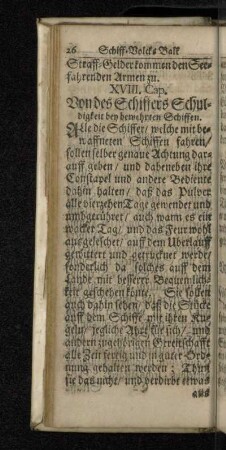 26 Schiff-Volcks Balk
Straff-Gelder kommen den See-
fahrenden Armen zu.
XVIII. Cap.
Von des Schiffers Schul-
digkeit bey bewehrten Schiffen.
Alle die Schiffer / welche mit be-
waffneten Schiffen fahren /
sollen selber genaue Achtung dar-
auff geben / und daheneben ihre
Constapel und andere Bediente
dahin halten / daß das Pulver
alle vierzehen Tage gewendet und
umbgerühret / auch wann es ein
wacker Tag / und das Feur wohl
ausgeleschet / auff dem Uberlauff
gewittert und getrucknet werde /
sonderlich da solches auff dem
Lande mit besserer Bequemlich-
keit geschehen könte. Sie sollen
auch dahin sehen / daß die Stücke
auff dem Schiffe mit ihren Ku-
geln / jegliche Ahrt für sich / und
andern zugehörigen Gereitschafft
alle Zeit fertig und in guter Ord-
nung gehalten werden: Thut
sie das nicht / und verdirbt etwas
aus